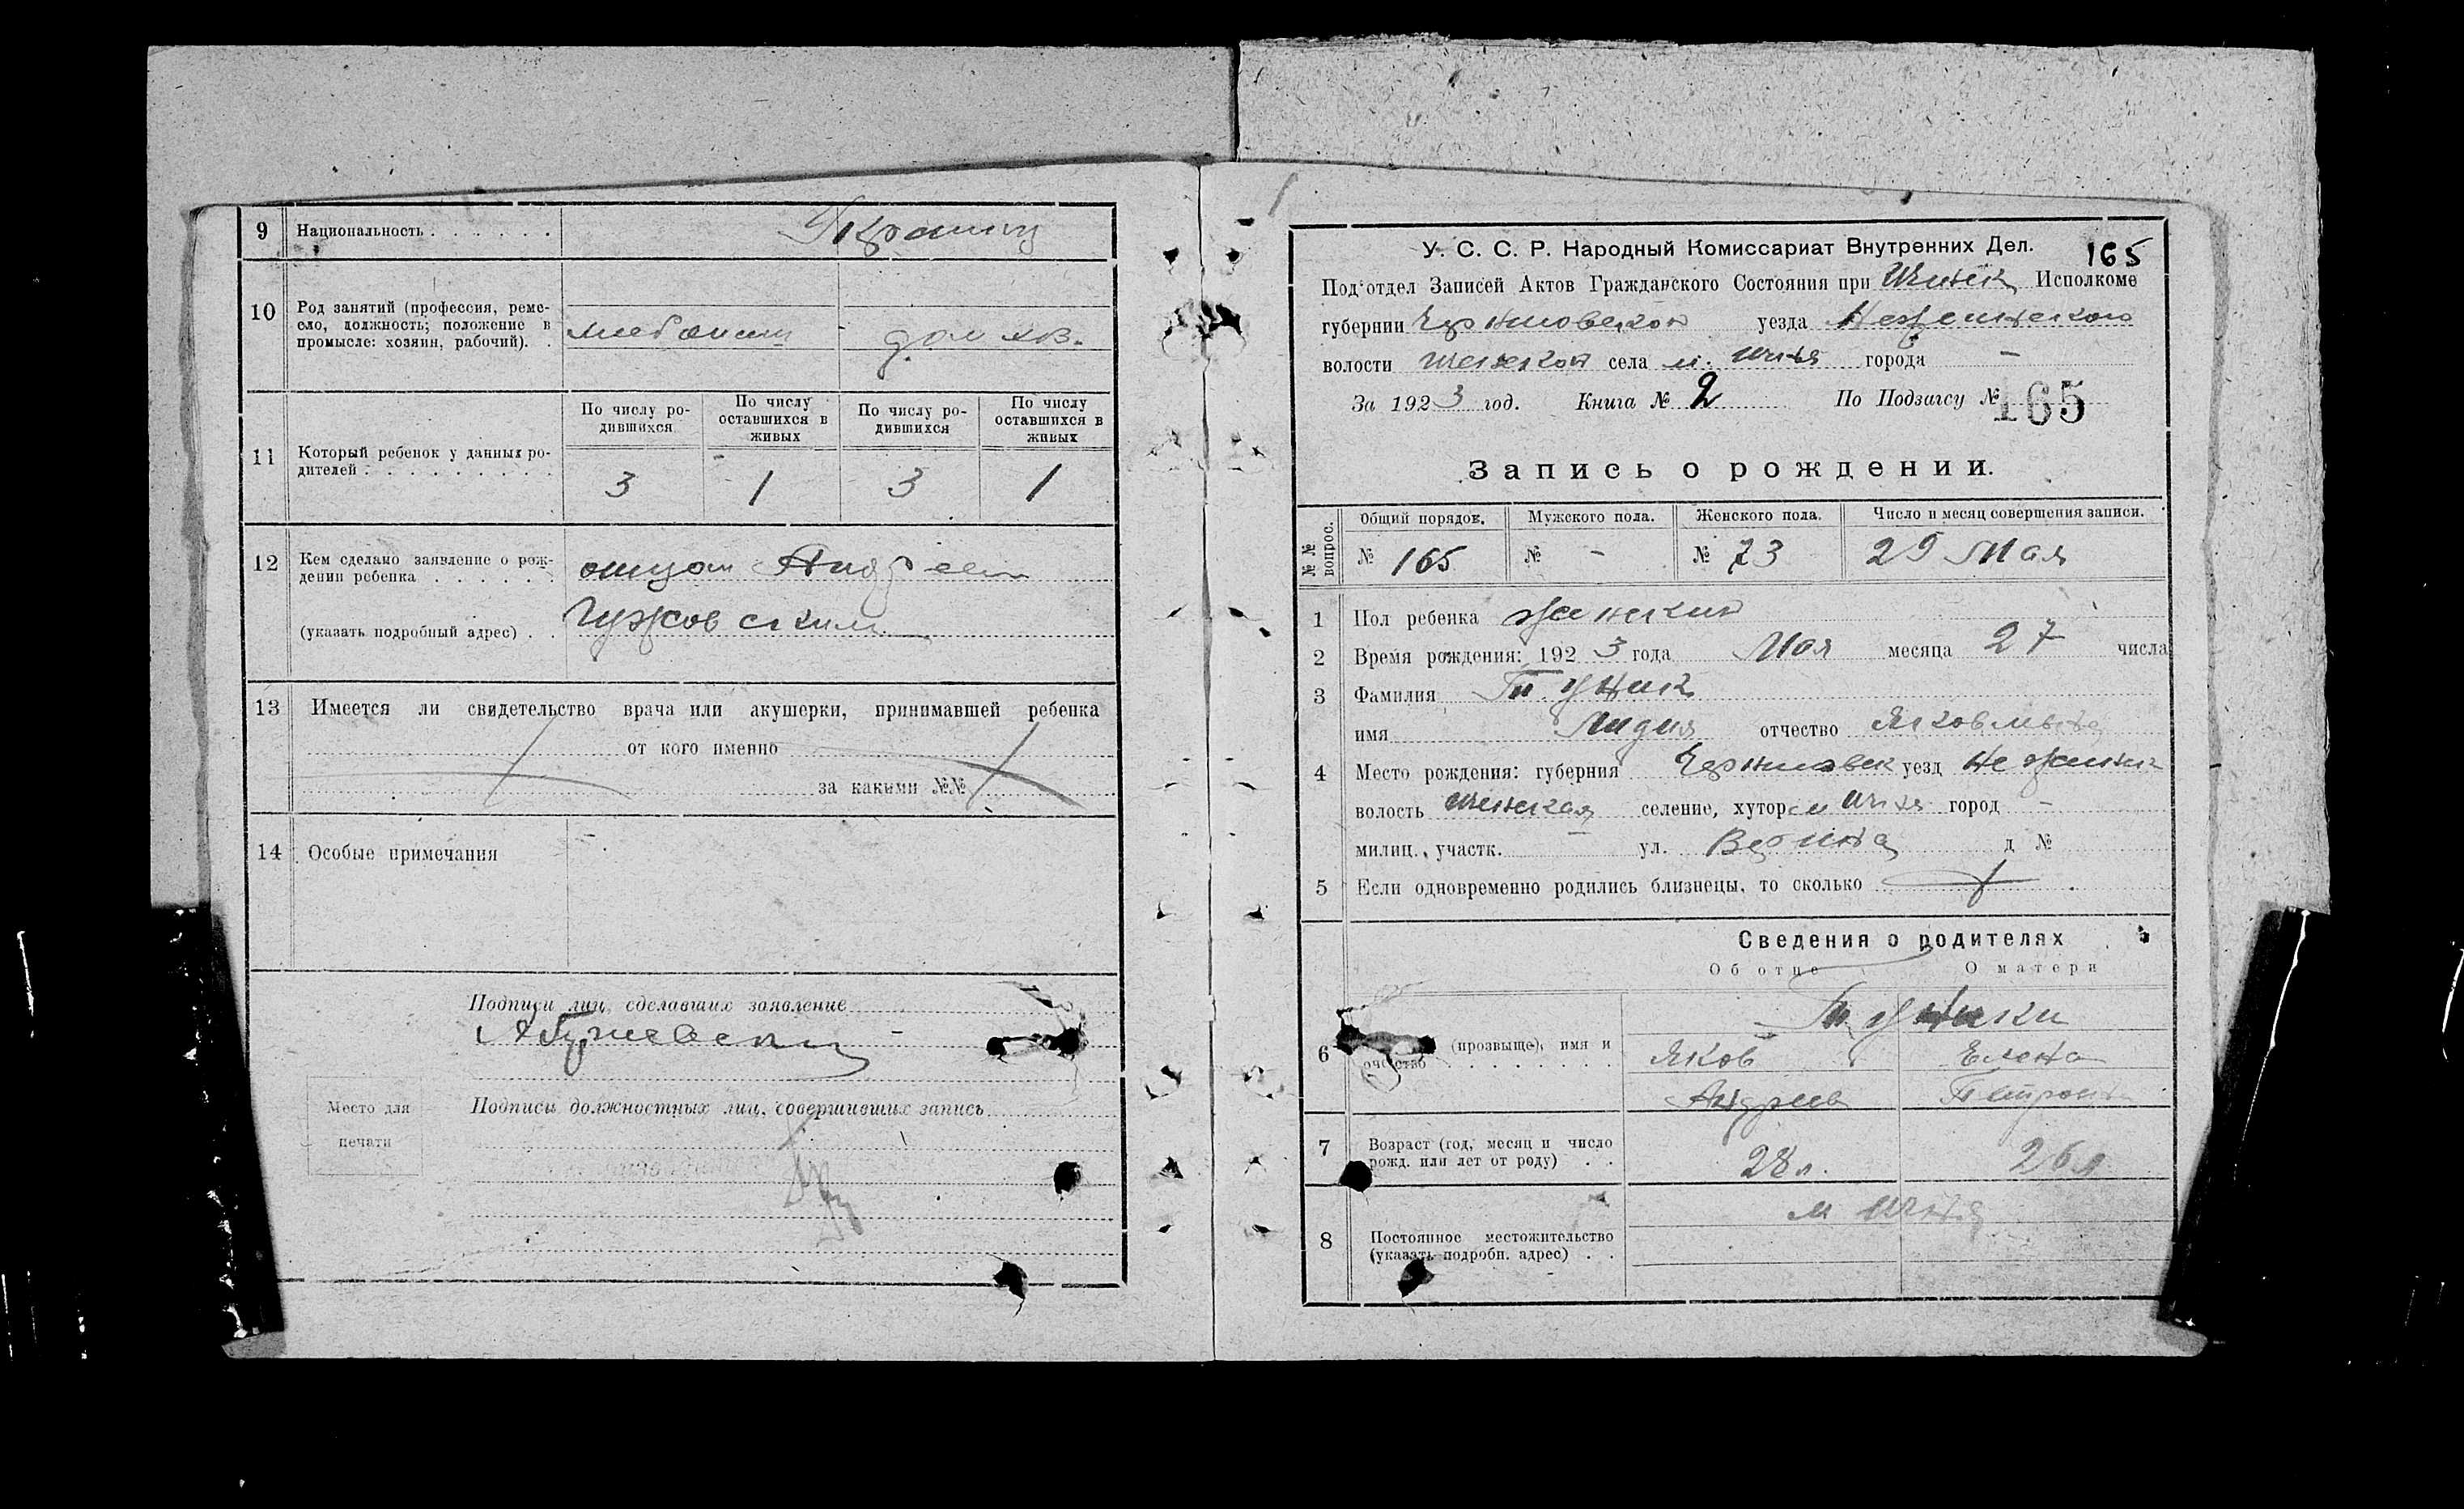 9 Национальность . . . . . . Украинцы
10 Род занятий (профессия, реме-
сло, должность; положение в
промысле: хозяин, рабочий). .
дом хоз.
По числу ро-
дившихся
По числу
оставшихся в
живых
По числу ро-
дившихся
По числу
оставшихся в
живых
11 Который ребенок у данных ро-
дителей . . . . . . . . . .
3 1 3 1
12 Кем сделано заявление о рож-
дении ребенка . . . . . . отцом Андреем
(указать подробный адрес) . . Гужовским
13 Имеется ли свидетельство врача или акушерки, принимавшей ребенка
от кого именно
за какими №№
14 Особые примечания
Подписи лиц, сделавших заявление
А Гужовский
Место для
печати
Подписи должностных лиц, совершивших запись
У. С. С. Р. Народный Комиссариат Внутренних Дел. 165
Под'отдел Записей Актов Гражданского Состояния при Иченск Исполкоме
губернии Черниговской уезда Неженского
волости Иченской села м. Ичня города -
За 1923 год. Книга № 2 По Подзагсу № 165
Запись о рождении.
№ №
вопрос.
Общий порядок. Мужского пола. Женского пола. Число и месяц совершения записи.
№ 165 № - № 73 29 Мая
1 Пол ребенка женский
2 Время рождения: 1923 года Мая месяца 27 числа
3 Фамилия
имя Лидия отчество Яковлевна
4 Место рождения: губерния Черниговск уезд Неженск
волость Иченская селение, хутор м Ичня город -
милиц. участк. ул. д №
5 Если одновременно родились близнецы, то сколько
Сведения о родителях
Об отце О матери
6 (прозвище), имя и
отчество . . . . . . . .
Яков Елена
Андреев Петровна
7 Возраст (год, месяц и число
рожд. или лет от роду) . .
28 л. 26 л
8 Постоянное местожительство
(указать подробн. адрес) . .
м Ичня